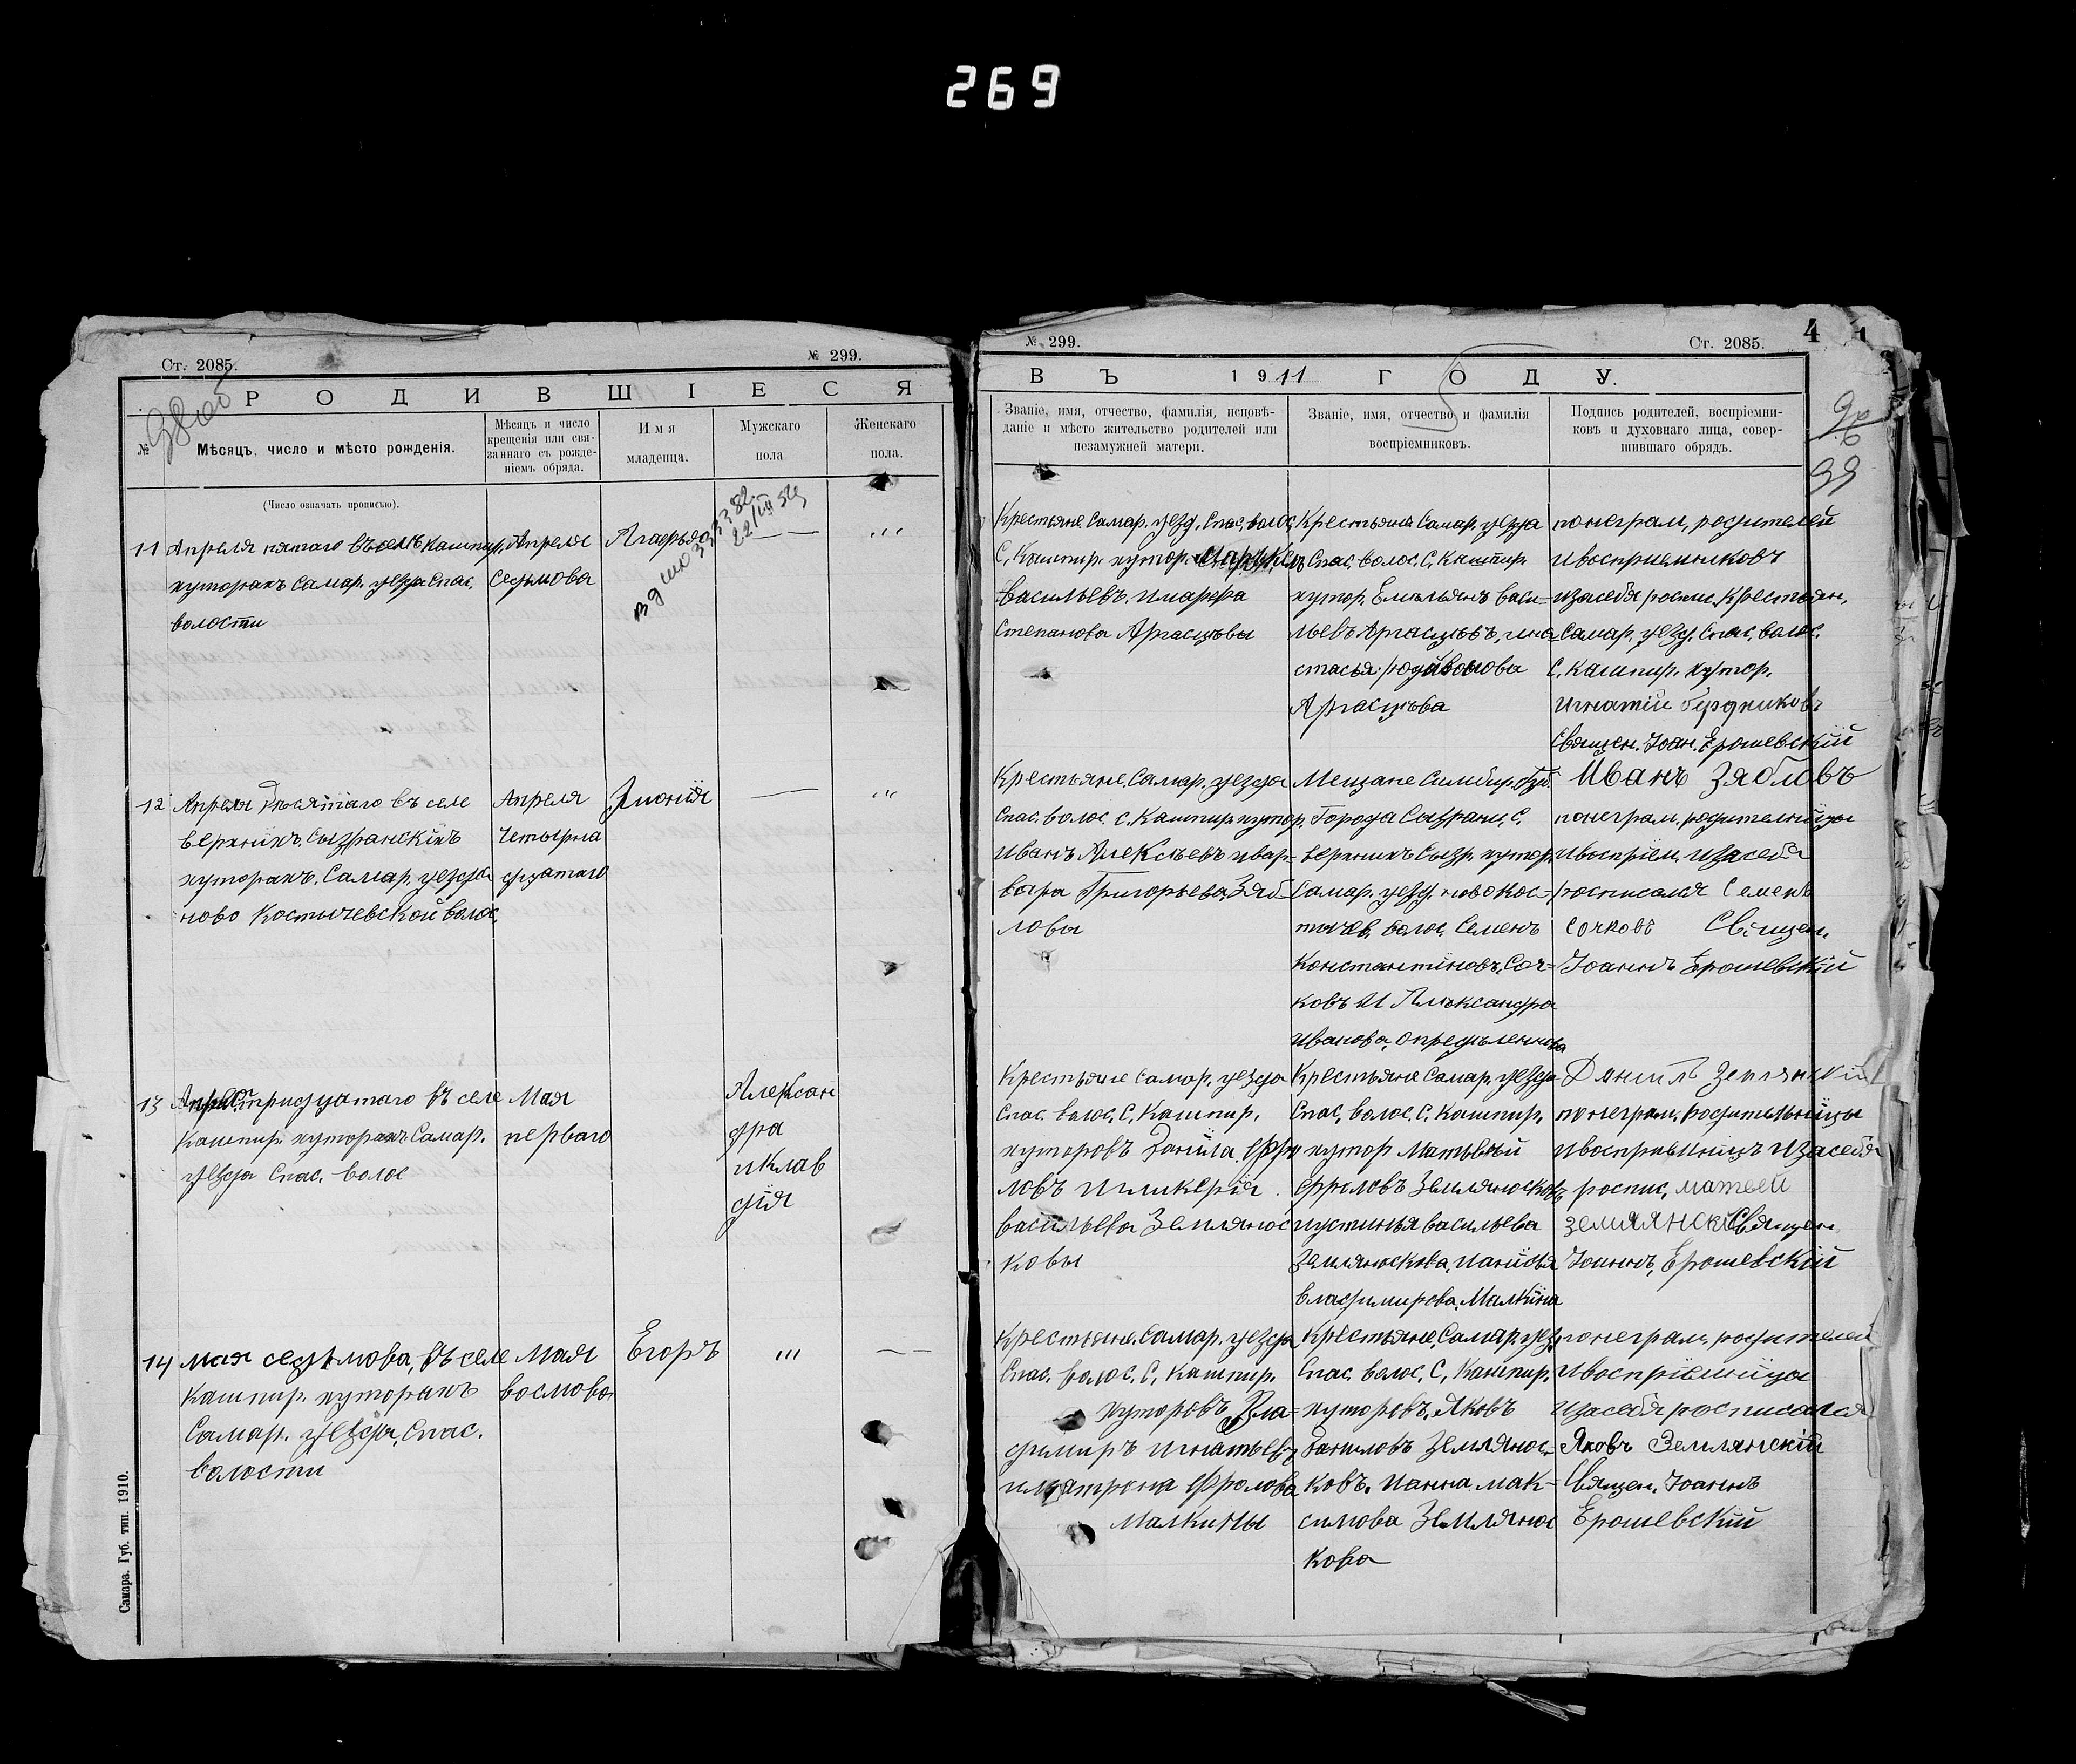 269
Ст. 2085.
№ 299.
РОДИВШІЕСЯ
№
Мѣсяцъ, число и мѣсто рожденія.
(Число означать прописью).
Мѣсяцъ и число
крещенія или свя-
заннаго съ рожде-
ніемъ обряда.
Имя
младенца.
Мужскаго
пола
Женскаго
пола.
11 Апреля пятаго въ селѣ Кашпир.
хуторахъ Самар. уезда Спас.
волости
Апреля
седьмова
22/III 52
12 Апреля десятаго въ селе
верхнихъ Сызранскихъ
хуторахъ. Самар. уезда
ново Костычевской волос.
Апреля
Четырна
дцатаго
13 тридцатаго въ селе
Кашпир. хуторахъ Самар.
уезда Спас. волос
Мая
перваго
Алексан
дра
и Клав
дія
14 Мая седьмова, въ селе
Кашпир. хуторахъ
Самар. уезда, Спас.
волости
Мая
восмова
Егоръ
Самара. Губ. тип. 1910.
№ 299.
Ст. 2085.
4
ВЪ 1911 ГОДУ.
Званіе, имя, отчество, фамилія, исповѣ-
даніе и мѣсто жительство родителей или
незамужней матери.
Званіе, имя, отчество и фамилія
воспріемниковъ.
Подпись родителей, воспріемни-
ковъ и духовнаго лица, совер-
шившаго обрядъ.
99
Крестьяне Самар. уезд. Спас. волос.
С. Кашпир. хутор.
Васильевъ. и
Степанова
Крестьяне Самар. уезда
Спас. волос. С. Кашпир.
хутор. Емельянъ Васи-
льевъ и на
стасья
понеграм. родителей
и восприемниковъ
и за себя роспис. Крестьян.
Самар. уезд. Спас. волос.
С. Кашпир. хутор.
Игнатій Бурдниковъ
Священ. Іоан. Ерошевскій
Крестьяне. Самар. уезда
Спас. волос. С. Кашпир. хутор.
Иванъ Алексѣевъ и вар-
вара Григорьева Зяб-
ловы
Мещане Симбир. Губ.
Города Сызрани, С.
верхнихъ Сызр. хутор.
Самар. уезд. ново Кос-
тычев. волос. Семенъ
Константиновъ. Соч-
ковъ и Александра
Иванова,
Иванъ Зябловъ
понеграм.
и воспріем. и за себя
росписался Семенъ
Сочковъ Священ.
Іоаннъ Ерошевскій
Крестьяне Самар. уезда
Спас. волос. С. Кашпир.
хуторовъ Данила Фро
ловъ и Гликерія
Васильева Землянос
ковы
Крестьяне Самар. уезда
Спас. волос. С. Кашпир.
хутор Матьвѣй
Фроловъ
и устинья Васильева
Владимирова Малкина
Данилъ
понеграм.
и за себя
роспис. Матвей
Священ.
Іоаннъ, Ерошевскій
Крестьяне. Самар. уезда
Спас. волос. С. Кашпир.
хуторовъ Вла-
димиръ Игнатьевъ
и матрона Фролова
Малкины
Крестьяне, Самар. уез.
Спас. волос. С. Кашпир.
хуторовъ. Яковъ
Даниловъ Землянос-
ковъ. и анна мак-
симова Землянос
кова
понеграм. родителей
и за себя росписался
Яковъ Землянскій
Священ. Іоаннъ
Ерошевскій